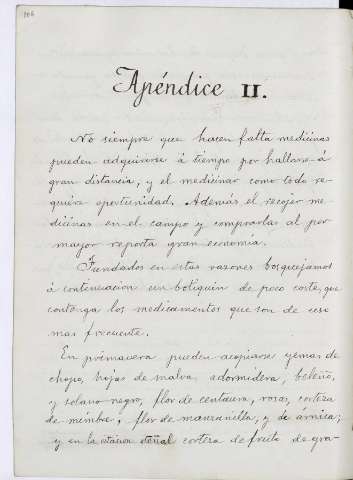 Apéndice II.
No siempre que hacen falta medicinas
pueden adquirirse á tiempo por hallarse á
gran distancia, y el medicinar como todo re-
quiere oportunidad. Además el recojer me-
dicinas en el campo y comprarlas al por
mayor reporta gran economía.
Fundados en estas razones bosquejamos
á continuación un botiquin de poco coste, que
contenga los medicamentos que son de uso
mas frecuente.
En primavera pueden acopiarse yemas de
chopo, hojas de malva, adormidera, beleño,
y solano negro, flor de centaura, rosas, corteza
de mimbre, flor de manzanilla, y de árnica;
y en la otoñal corteza de fruto de gra-